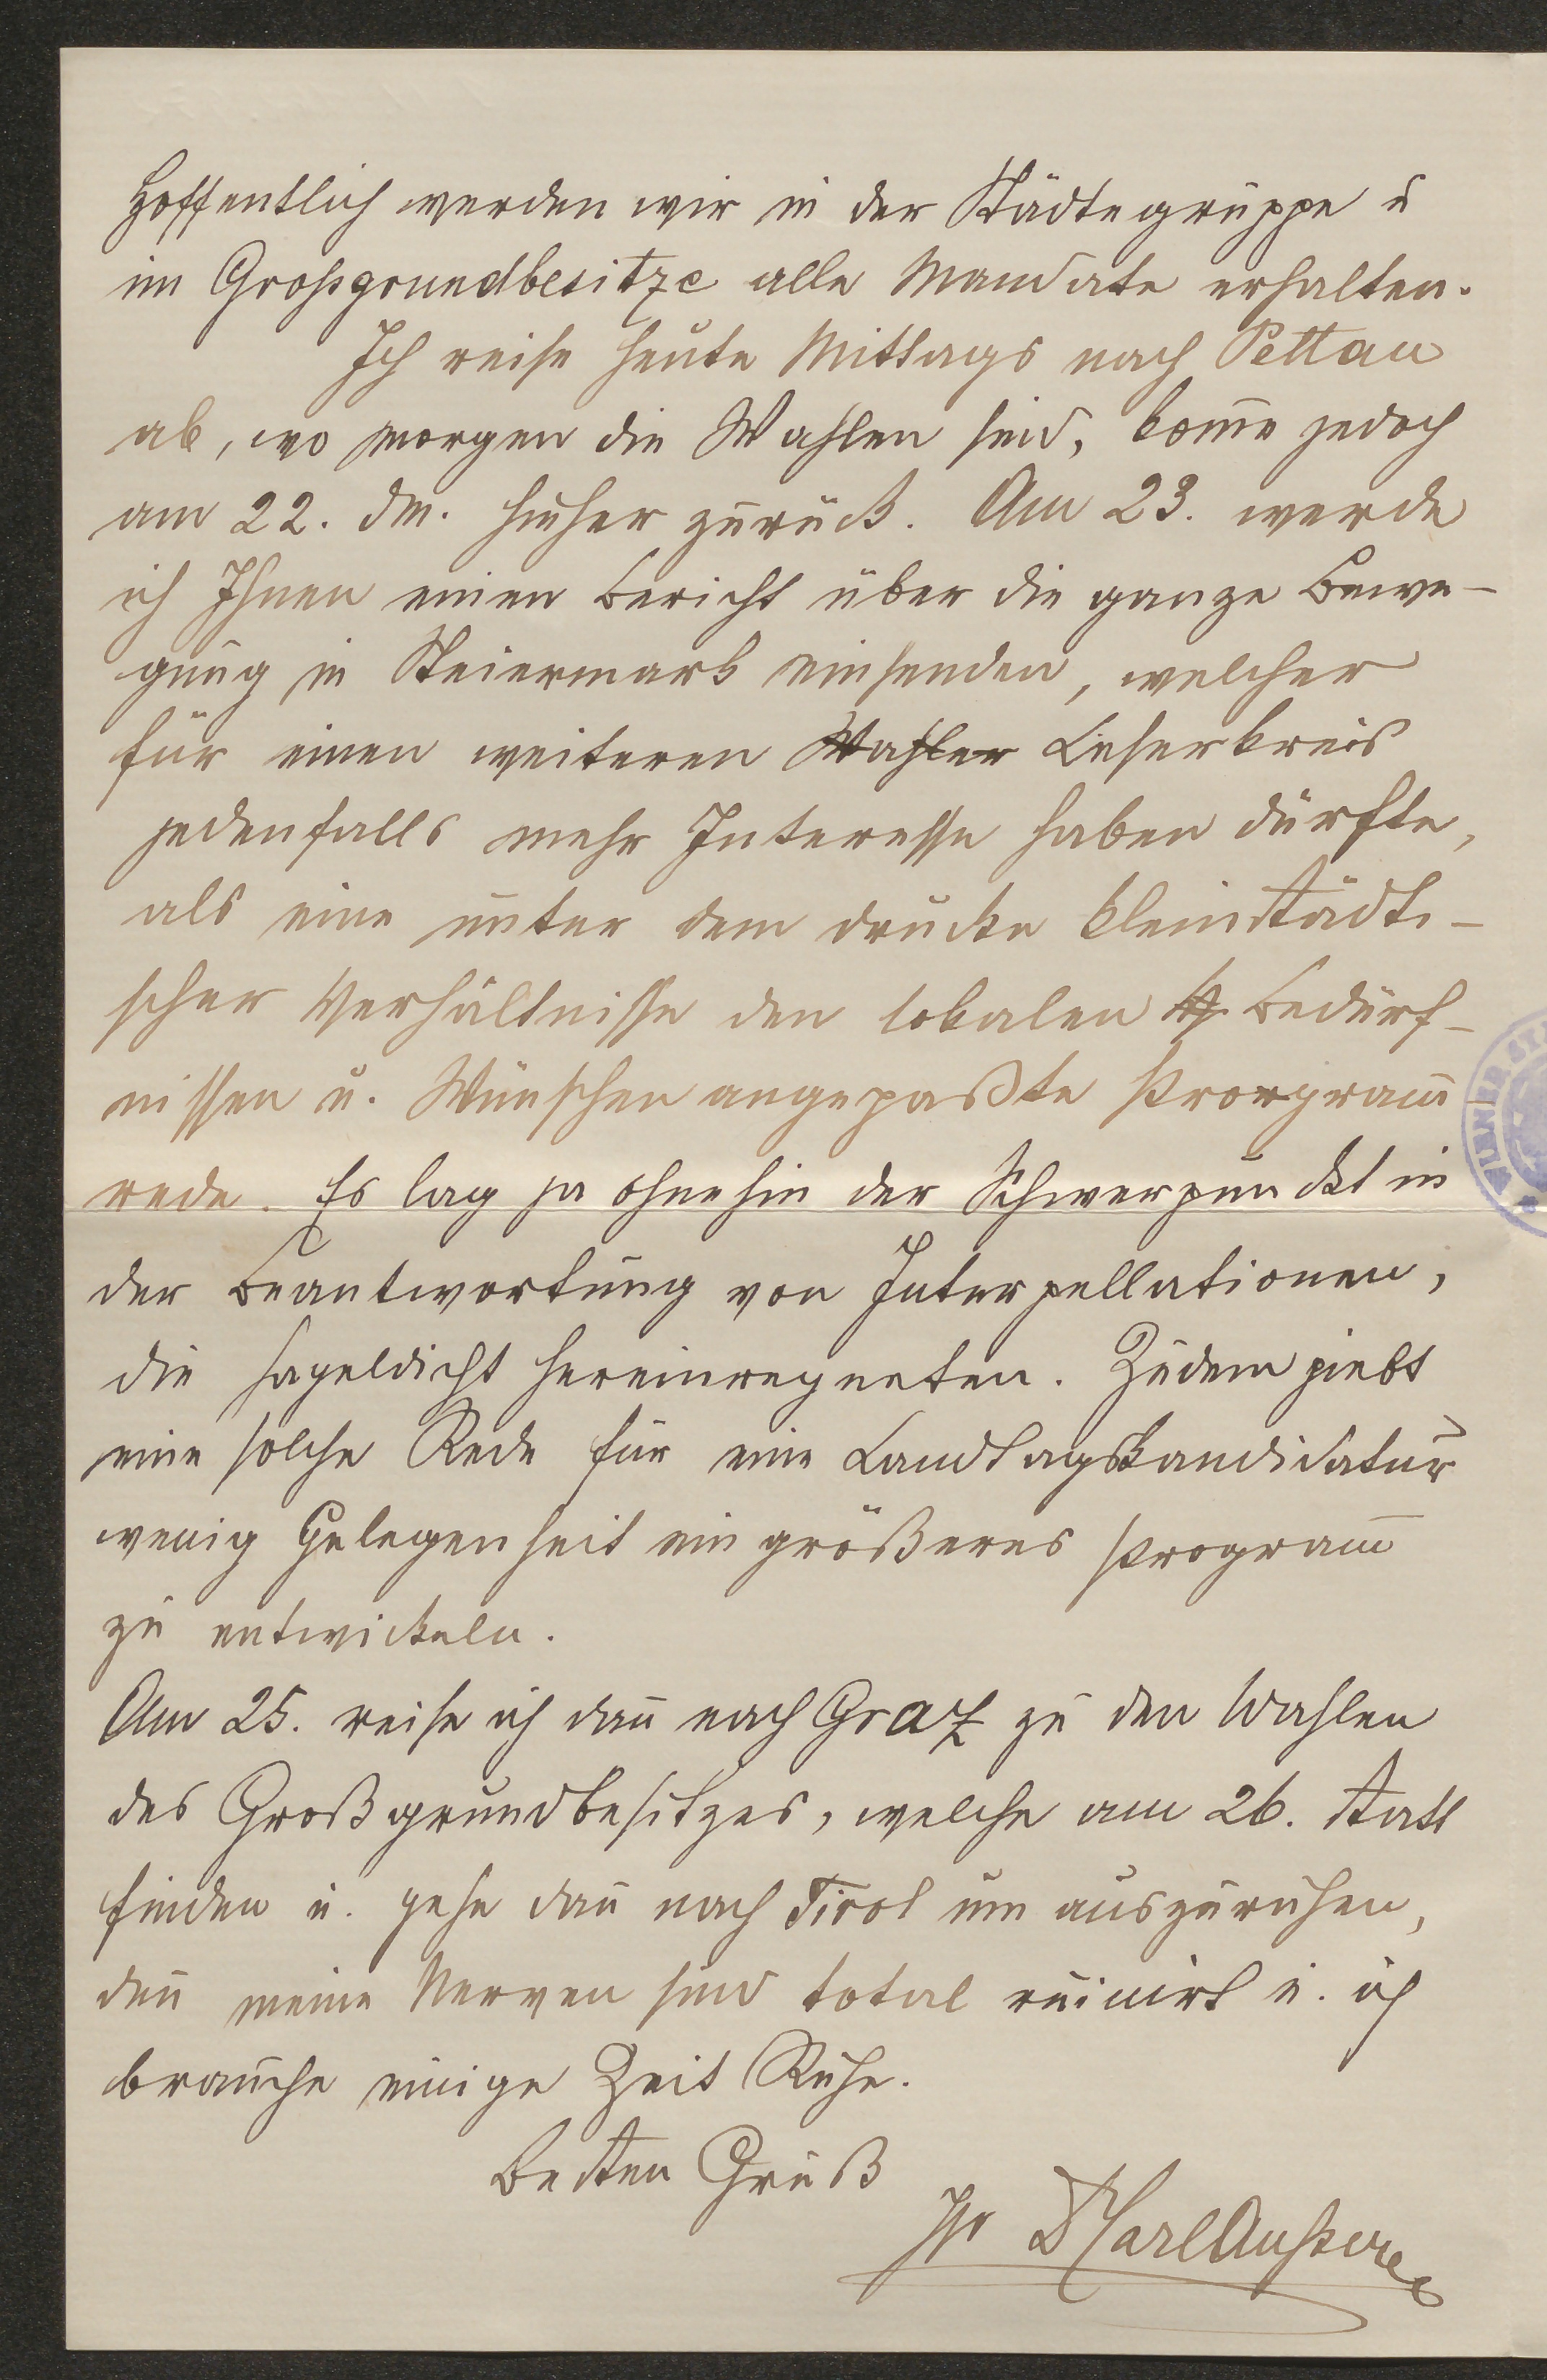 Hoffentlich werden wir in der Städtegruppe u
im Großgrundbesitze alle Mandate erhalten.
Ich reise heute Mittags nach Pettau
ab, wo morgen die Wahlen sind, kom̄e jedoch
am 22. dM. hieher zurück. Am 23. werde
ich Ihnen einen Bericht über die ganze Bewe-
gung in Steiermark einsenden, welcher
für einen weiteren Wahler Leserkreis
jedenfalls mehr Interesse haben dürfte,
als eine unter dem Drucke kleinstädti-
scher Verhältnisse den lokalen Bedürf-
nissen u. Wünschen angepaßte Prorgram̄
rede. Es lag ja ohnehin der Schwerpunckt in
der Beantwortung von Interpellationen,
die hageldicht hereinregneten. Zudem giebt
eine solche Rede für eine Landtagskandidatur
wenig Gelegenheit ein größeres Program̄
zu entwickeln.
Am 25. reise ich dan̄ nach Graz zu den Wahlen
des Großgrundbesitzes, welche am 26. statt
finden u. gehe dan̄ nach Tirol um auszuruhen,
den̄ meine Nerven sind total ruinirt u. ich
brauche einige Zeit Ruhe.
Besten Gruß
Ihr Dr Karl Ausserer
WIENER ST